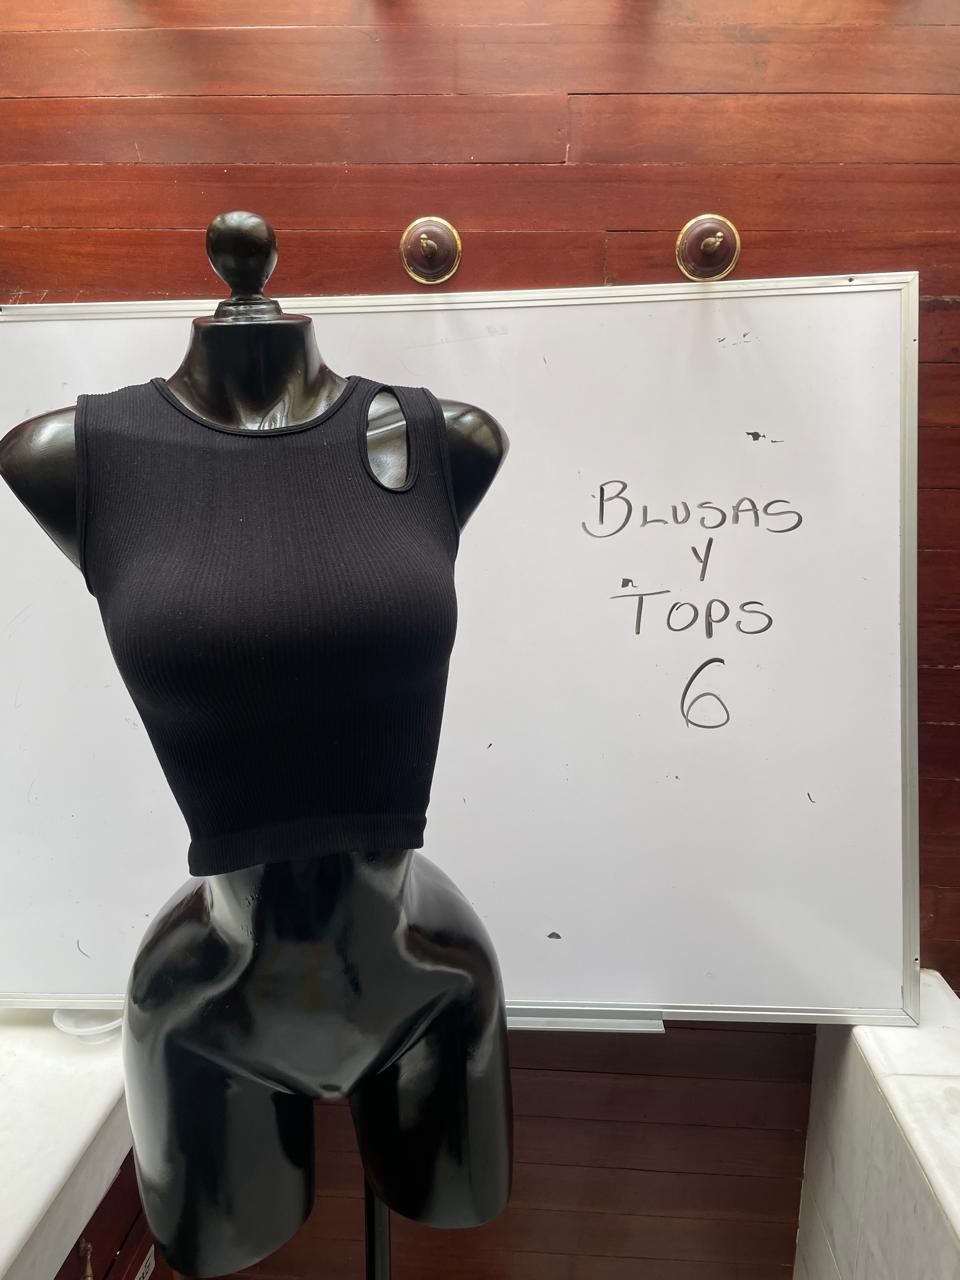 BLUSAS
Y
TOPS
6